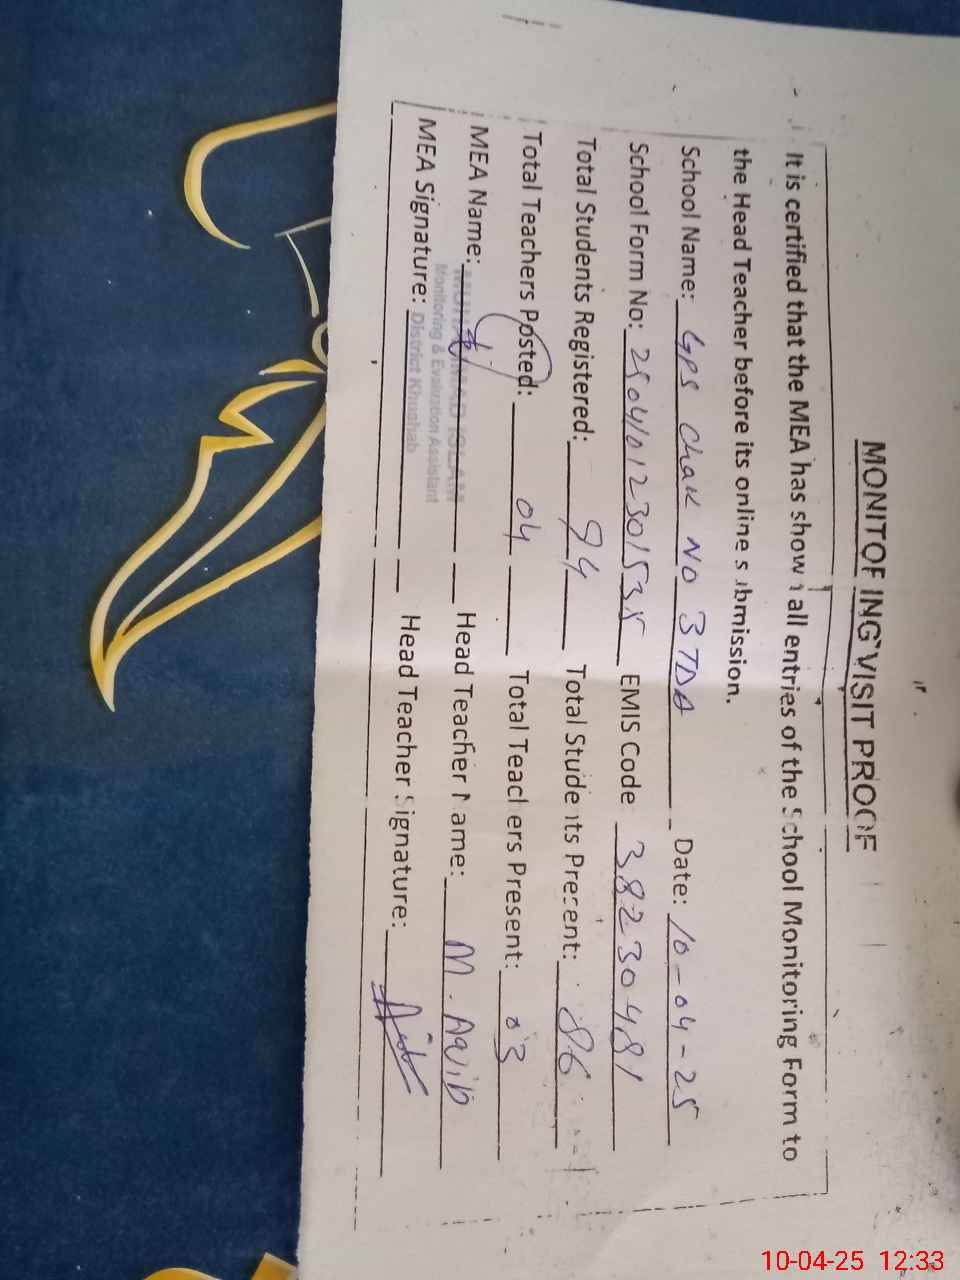 MONITORING VISIT PROOF
It is certified that the MEA has shown all entries of the School Monitoring Form to
the Head Teacher before its online submission.
School Name: GPS Chak No 3 TDA Date: 10-04-25
School Form No: 2504012301535 EMIS Code 38230481
Total Students Registered: 94 Total Students Present: 86
Total Teachers Posted: 04 Total Teachers Present: 03
MEA Name: MUHAMMAD ISLAM Head Teacher Name: M. Aqib
Monitoring & Evaluation Assistant
MEA Signature: District Khushab Head Teacher Signature:
10-04-25 12:33